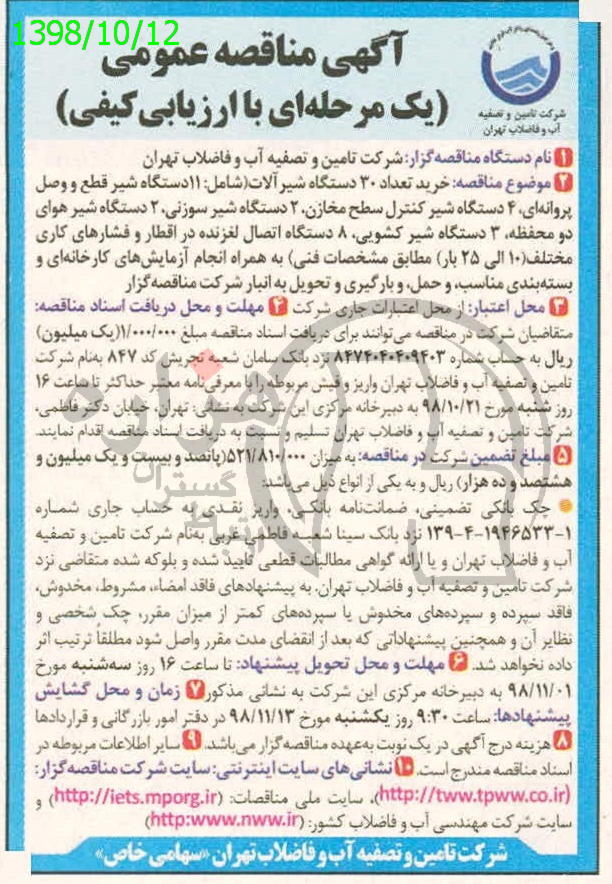 1398/10/12
آگهی مناقصه عمومی
(یک مرحله‌ای با ارزیابی کیفی)
شرکت تامین و تصفیه
آب و فاضلاب تهران
1 نام دستگاه مناقصه‌گزار: شرکت تامین و تصفیه آب و فاضلاب تهران
2 موضوع مناقصه: خرید تعداد ۳۰ دستگاه شیرآلات(شامل: ۱۱دستگاه شیر قطع و وصل
پروانه‌ای، ۴ دستگاه شیر کنترل سطح مخازن، ۲ دستگاه شیر سوزنی، ۲ دستگاه شیر هوای
دو محفظه، ۳ دستگاه شیر کشویی، ۸ دستگاه اتصال لغزنده در اقطار و فشارهای کاری
مختلف(۱۰ الی ۲۵ بار) مطابق مشخصات فنی) به همراه انجام آزمایش‌های کارخانه‌ای و
بسته‌بندی مناسب، و حمل، و بارگیری و تحویل به انبار شرکت مناقصه‌گزار
3 محل اعتبار: از محل اعتبارات جاری شرکت 4 مهلت و محل دریافت اسناد مناقصه:
متقاضیان شرکت در مناقصه می‌توانند برای دریافت اسناد مناقصه مبلغ ۱/۰۰۰/۰۰۰(یک میلیون)
ریال به حساب شماره ۸۴۷۴۰۴۰۴۰۹۴۰۳ نزد بانک سامان شعبه تجریش کد ۸۴۷ به‌نام شرکت
تامین و تصفیه آب و فاضلاب تهران واریز و فیش مربوطه را با معرفی‌نامه معتبر حداکثر تا ساعت ۱۶
روز شنبه مورخ ۹۸/۱۰/۲۱ به دبیرخانه مرکزی این شرکت به نشانی: تهران، خیابان دکتر فاطمی،
شرکت تامین و تصفیه آب و فاضلاب تهران تسلیم و نسبت به دریافت اسناد مناقصه اقدام نمایند.
5 مبلغ تضمین شرکت در مناقصه: به میزان ۵۲۱/۸۱۰/۰۰۰(پانصد و بیست و یک میلیون و
هشتصد و ده هزار) ریال و به یکی از انواع ذیل می‌باشد:
چک بانکی تضمینی، ضمانت‌نامه بانکی، واریز نقدی به حساب جاری شماره
۱۳۹-۴-۱۹۴۶۵۳۳-۱ نزد بانک سینا شعبه فاطمی غربی به‌نام شرکت تامین و تصفیه
آب و فاضلاب تهران و یا ارائه گواهی مطالبات قطعی تایید شده و بلوکه شده متقاضی نزد
شرکت تامین و تصفیه آب و فاضلاب تهران. به پیشنهادهای فاقد امضاء، مشروط، مخدوش،
فاقد سپرده و سپرده‌های مخدوش یا سپرده‌های کمتر از میزان مقرر، چک شخصی و
نظایر آن و همچنین پیشنهاداتی که بعد از انقضای مدت مقرر واصل شود مطلقاً ترتیب اثر
داده نخواهد شد. 6 مهلت و محل تحویل پیشنهاد: تا ساعت ۱۶ روز سه‌شنبه مورخ
۹۸/۱۱/۰۱ به دبیرخانه مرکزی این شرکت به نشانی مذکور 7 زمان و محل گشایش
پیشنهادها: ساعت ۹:۳۰ روز یکشنبه مورخ ۹۸/۱۱/۱۳ در دفتر امور بازرگانی و قراردادها
8 هزینه درج آگهی در یک نوبت به‌عهده مناقصه‌گزار می‌باشد. 9 سایر اطلاعات مربوطه در
اسناد مناقصه مندرج است. 10 نشانی‌های سایت اینترنتی: سایت شرکت مناقصه‌گزار:
(http://tww.tpww.co.ir)، سایت ملی مناقصات: (http://iets.mporg.ir) و
سایت شرکت مهندسی آب و فاضلاب کشور: (http:www.nww.ir)
شرکت تامین و تصفیه آب و فاضلاب تهران «سهامی خاص»